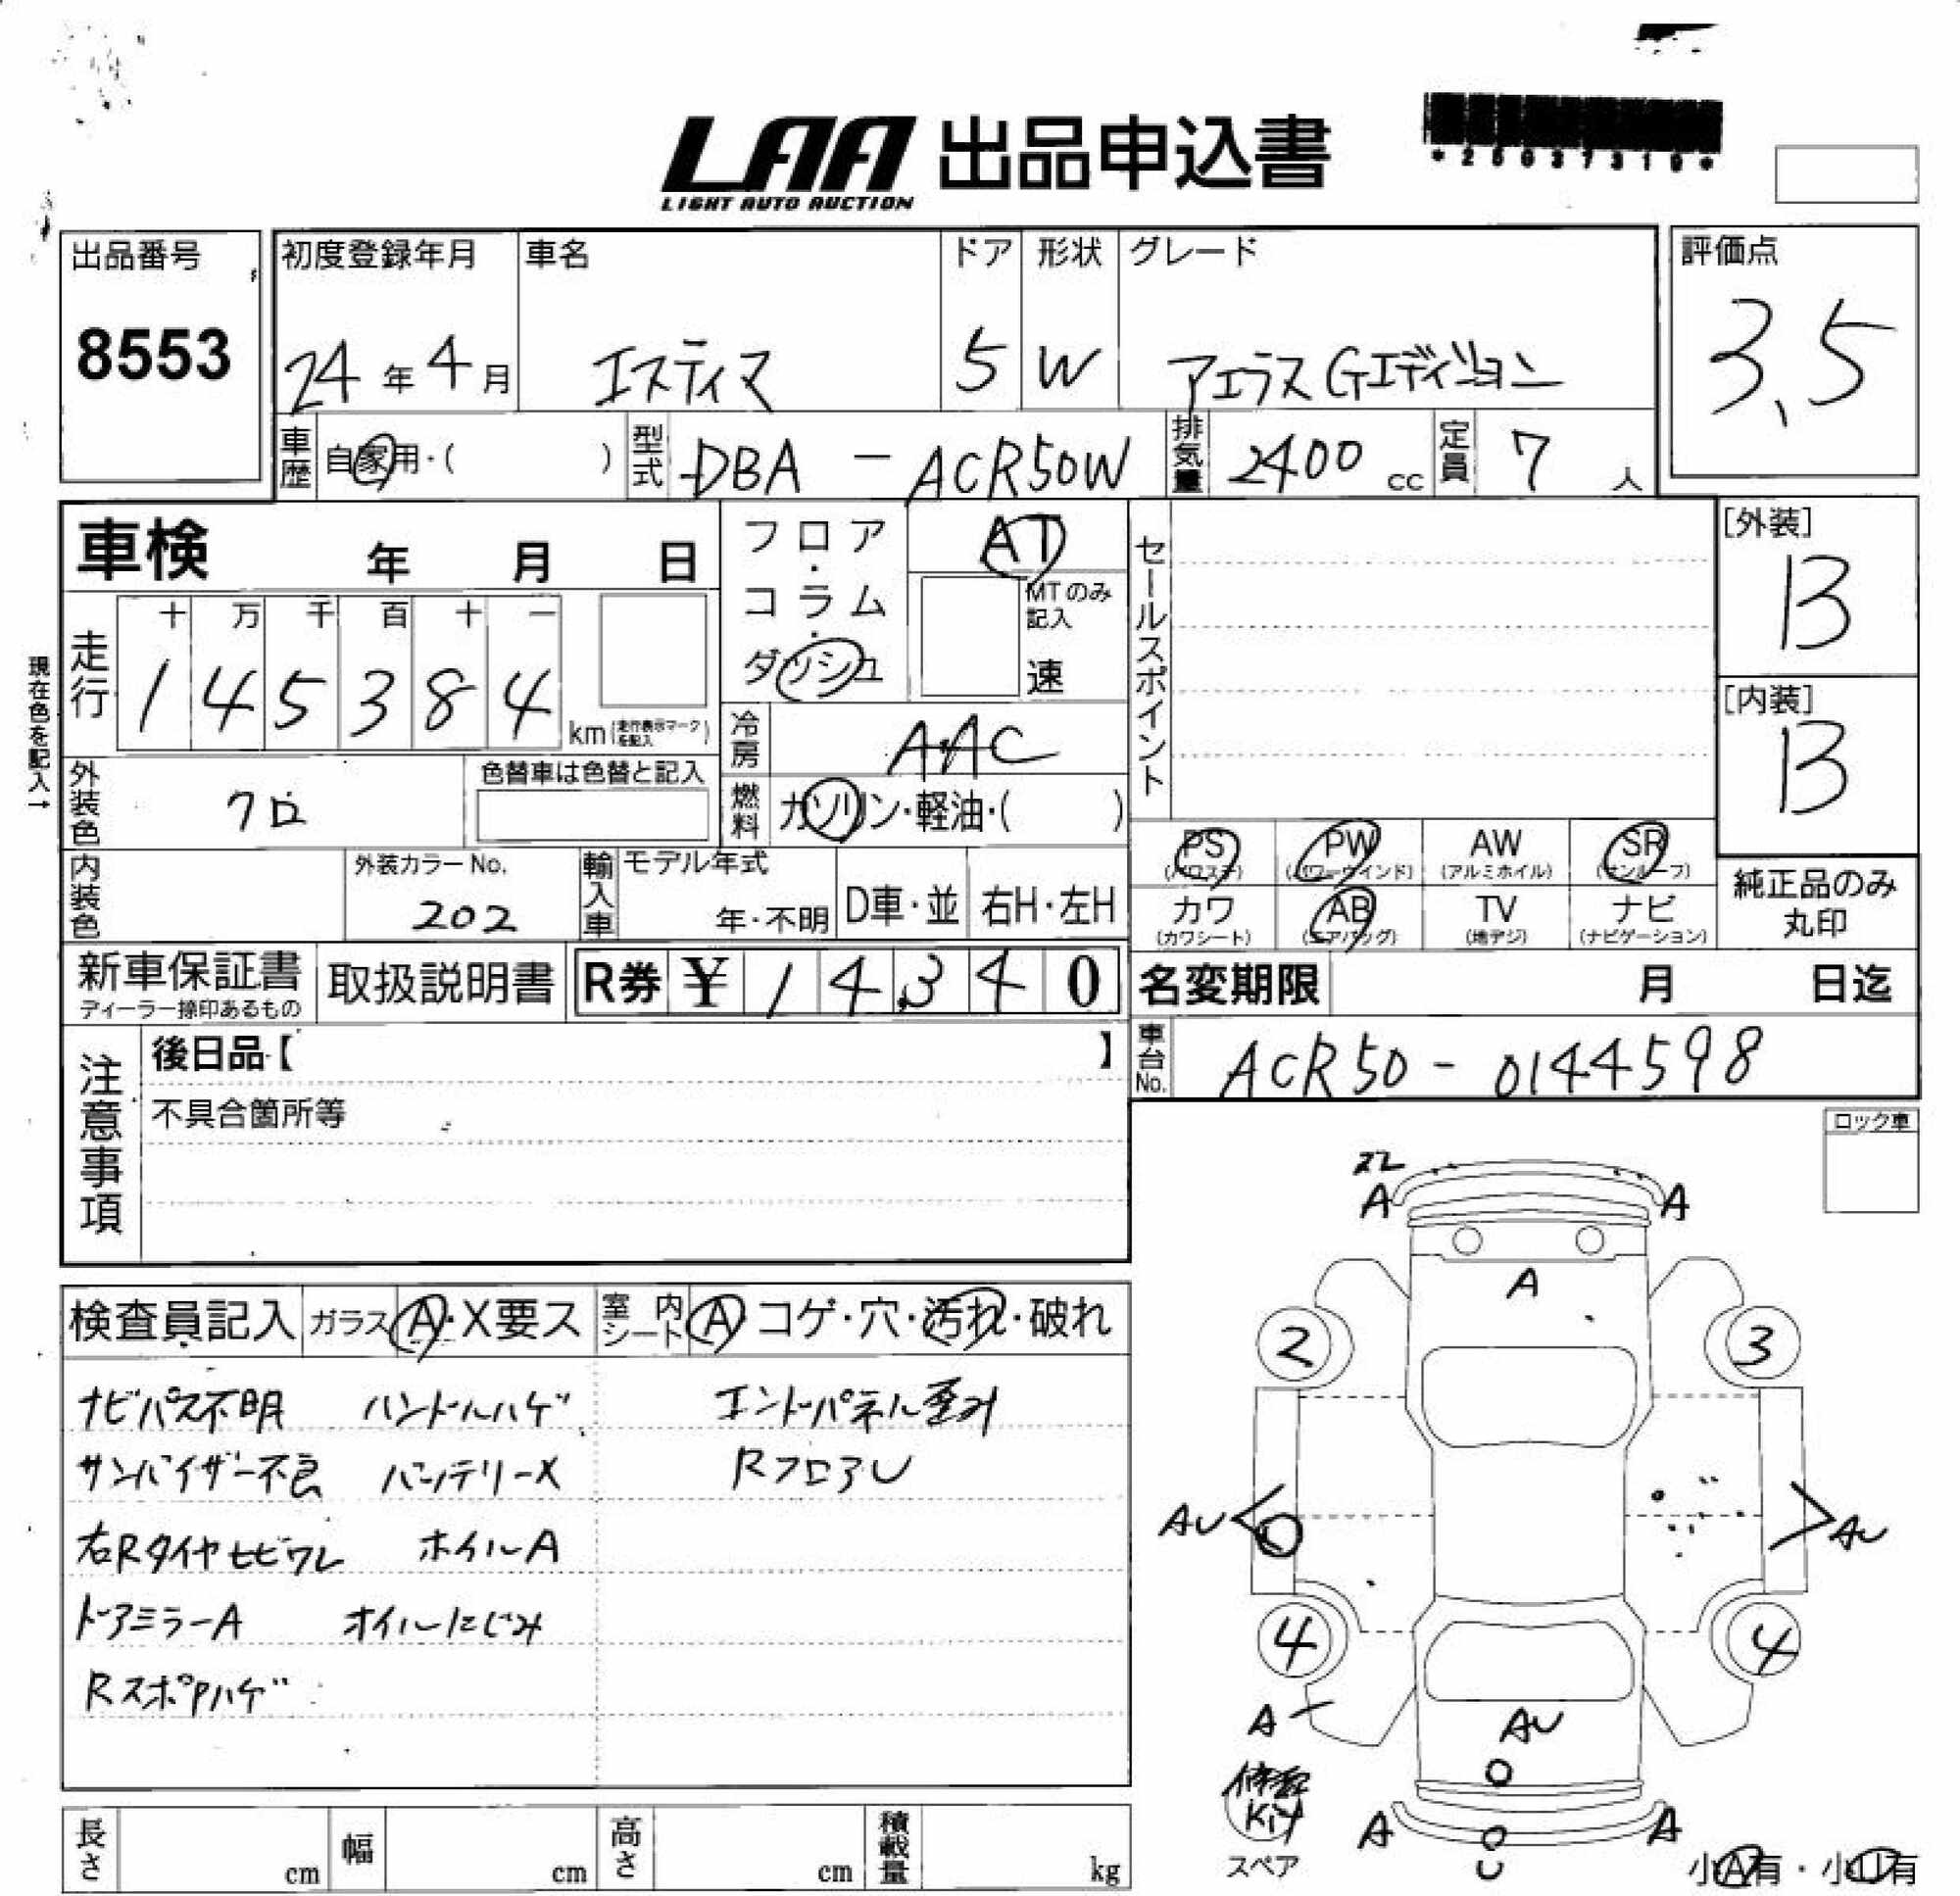 LAA 出品申込書
LIGHT AUTO AUCTION
*25037310*
出品番号
8553
初度登録年月
24年4月
車名
エスティマ
ドア
5
形状
W
グレード
アエラス Gエディション
評価点
3.5
車歴
自家用・( )
型式
DBA - ACR50W
排気量
2400 cc
定員
7 人
車検 年 月 日
現在色を記入→
走行
十 万 千 百 十 一
1 4 5 3 8 4
km (走行表示マークを記入)
フロア・コラム・ダッシュ
AT
MTのみ記入
速
冷房
AAC
燃料
ガソリン・軽油・( )
セールスポイント
[外装]
B
[内装]
B
外装色
クロ
色替車は色替と記入
内装色
外装カラーNo.
202
輸入車
モデル年式
年・不明
D車・並
右H・左H
PS (パワステ)
PW (パワーウインド)
AW (アルミホイル)
SR (サンルーフ)
カワ (カワシート)
AB (エアバッグ)
TV (地デジ)
ナビ (ナビゲーション)
純正品のみ
丸印
新車保証書
ディーラー捺印あるもの
取扱説明書
R券 ¥ 14340
名変期限 月 日迄
車台No.
ACR50 - 0144598
注意事項
後日品【 】
不具合箇所等
ロック車
検査員記入
ガラス
A・X要ス
室内シート
A コゲ・穴・汚れ・破れ
ナビパス不明 ハンドルハゲ エンドパネル歪み
サンバイザー不良 バッテリーX RフロアU
右Rタイヤヒビワレ ホイルA
ドアミラーA オイルにじみ
RスポPハゲ
スレ
A A
A
2 3
AU AU
4 4
A
AU
修理
Kit
スペア
A A
U
小A有・小U有
長さ cm
幅 cm
高さ cm
積載量 kg